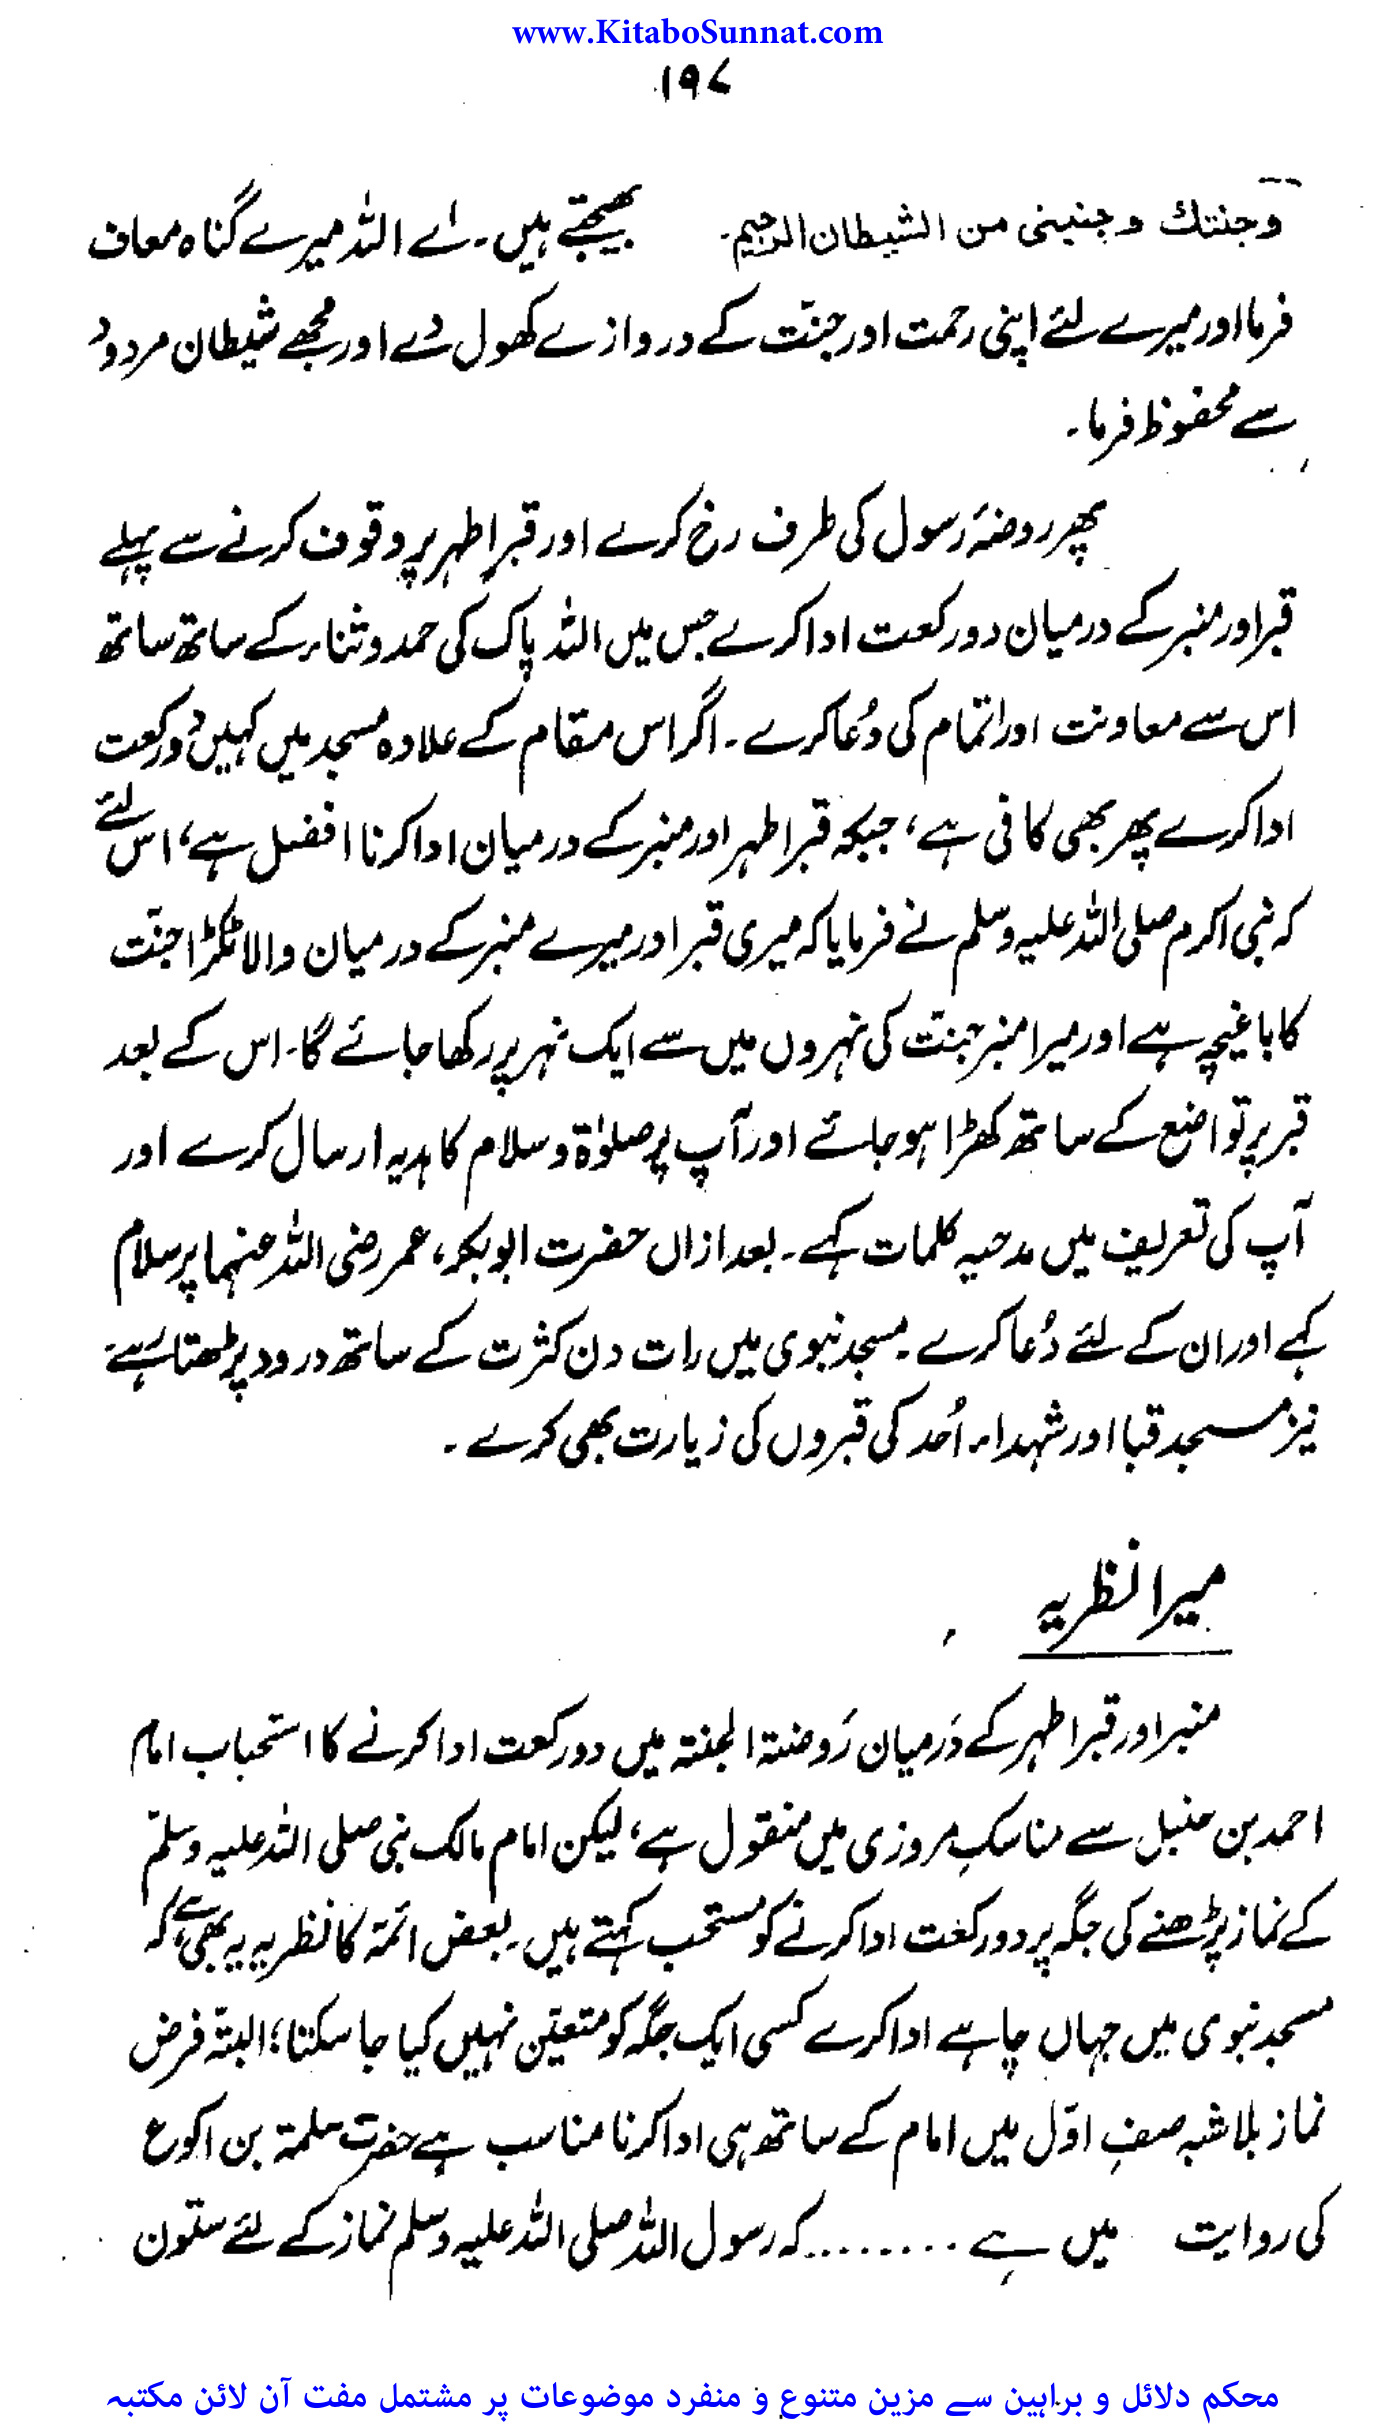 www.KitaboSunnat.com
۱۹۷
وجنتك وجنبنی من الشیطان الرجیم۔ بھیجتے ہیں۔ اے اللہ میرے گناہ معاف
فرما اور میرے لئے اپنی رحمت اور جنّت کے دروازے کھول دے اور مجھے شیطان مردود
سے محفوظ فرما۔
پھر روضۂ رسول کی طرف رخ کرے اور قبرِ اطہر پر وقوف کرنے سے پہلے
قبر اور منبر کے درمیان دو رکعت ادا کرے جس میں اللہ پاک کی حمد و ثناء کے ساتھ ساتھ
اس سے معاونت اور اتمام کی دُعا کرے۔ اگر اس مقام کے علاوہ مسجد میں کہیں دو رکعت
ادا کرے پھر بھی کافی ہے، جبکہ قبر اطہر اور منبر کے درمیان ادا کرنا افضل ہے، اس لئے
کہ نبی اکرم صلی اللہ علیہ وسلم نے فرمایا کہ میری قبر اور میرے منبر کے درمیان والا ٹکڑا جنّت
کا باغیچہ ہے اور میرا منبر جنّت کی نہروں میں سے ایک نہر پر رکھا جائے گا۔ اس کے بعد
قبر پر تواضع کے ساتھ کھڑا ہو جائے اور آپ پر صلوٰۃ و سلام کا ہدیہ ارسال کرے اور
آپ کی تعریف میں مدحیہ کلمات کہے۔ بعد ازاں حضرت ابوبکر، عمر رضی اللہ عنہما پر سلام
کہے اور ان کے لئے دُعا کرے۔ مسجد نبوی میں رات دن کثرت کے ساتھ درود پڑھتا رہے
نیز مسجد قبا اور شہداء اُحد کی قبروں کی زیارت بھی کرے۔
میرا نظریہ
منبر اور قبر اطہر کے دَرمیان رَوضۃ الجنۃ میں دو رکعت ادا کرنے کا استحباب امام
احمد بن حنبل سے مناسکِ مروزی میں منقول ہے، لیکن امام مالک نبی صلی اللہ علیہ وسلّم
کے نماز پڑھنے کی جگہ پر دو رکعت ادا کرنے کو مستحب کہتے ہیں۔ بعض ائمّۃ کا نظریہ یہ بھی ہے کہ
مسجد نبوی میں جہاں چاہے ادا کرے کسی ایک جگہ کو متعیّن نہیں کیا جا سکتا؛ البتّہ فرض
نماز بلا شبہ صفِ اوّل میں امام کے ساتھ ہی ادا کرنا مناسب ہے حضرت سلمۃ بن اکوع
کی روایت میں ہے ........ کہ رسول اللہ صلی اللہ علیہ وسلم نماز کے لئے ستون
محکم دلائل و براہین سے مزین متنوع و منفرد موضوعات پر مشتمل مفت آن لائن مکتبہ